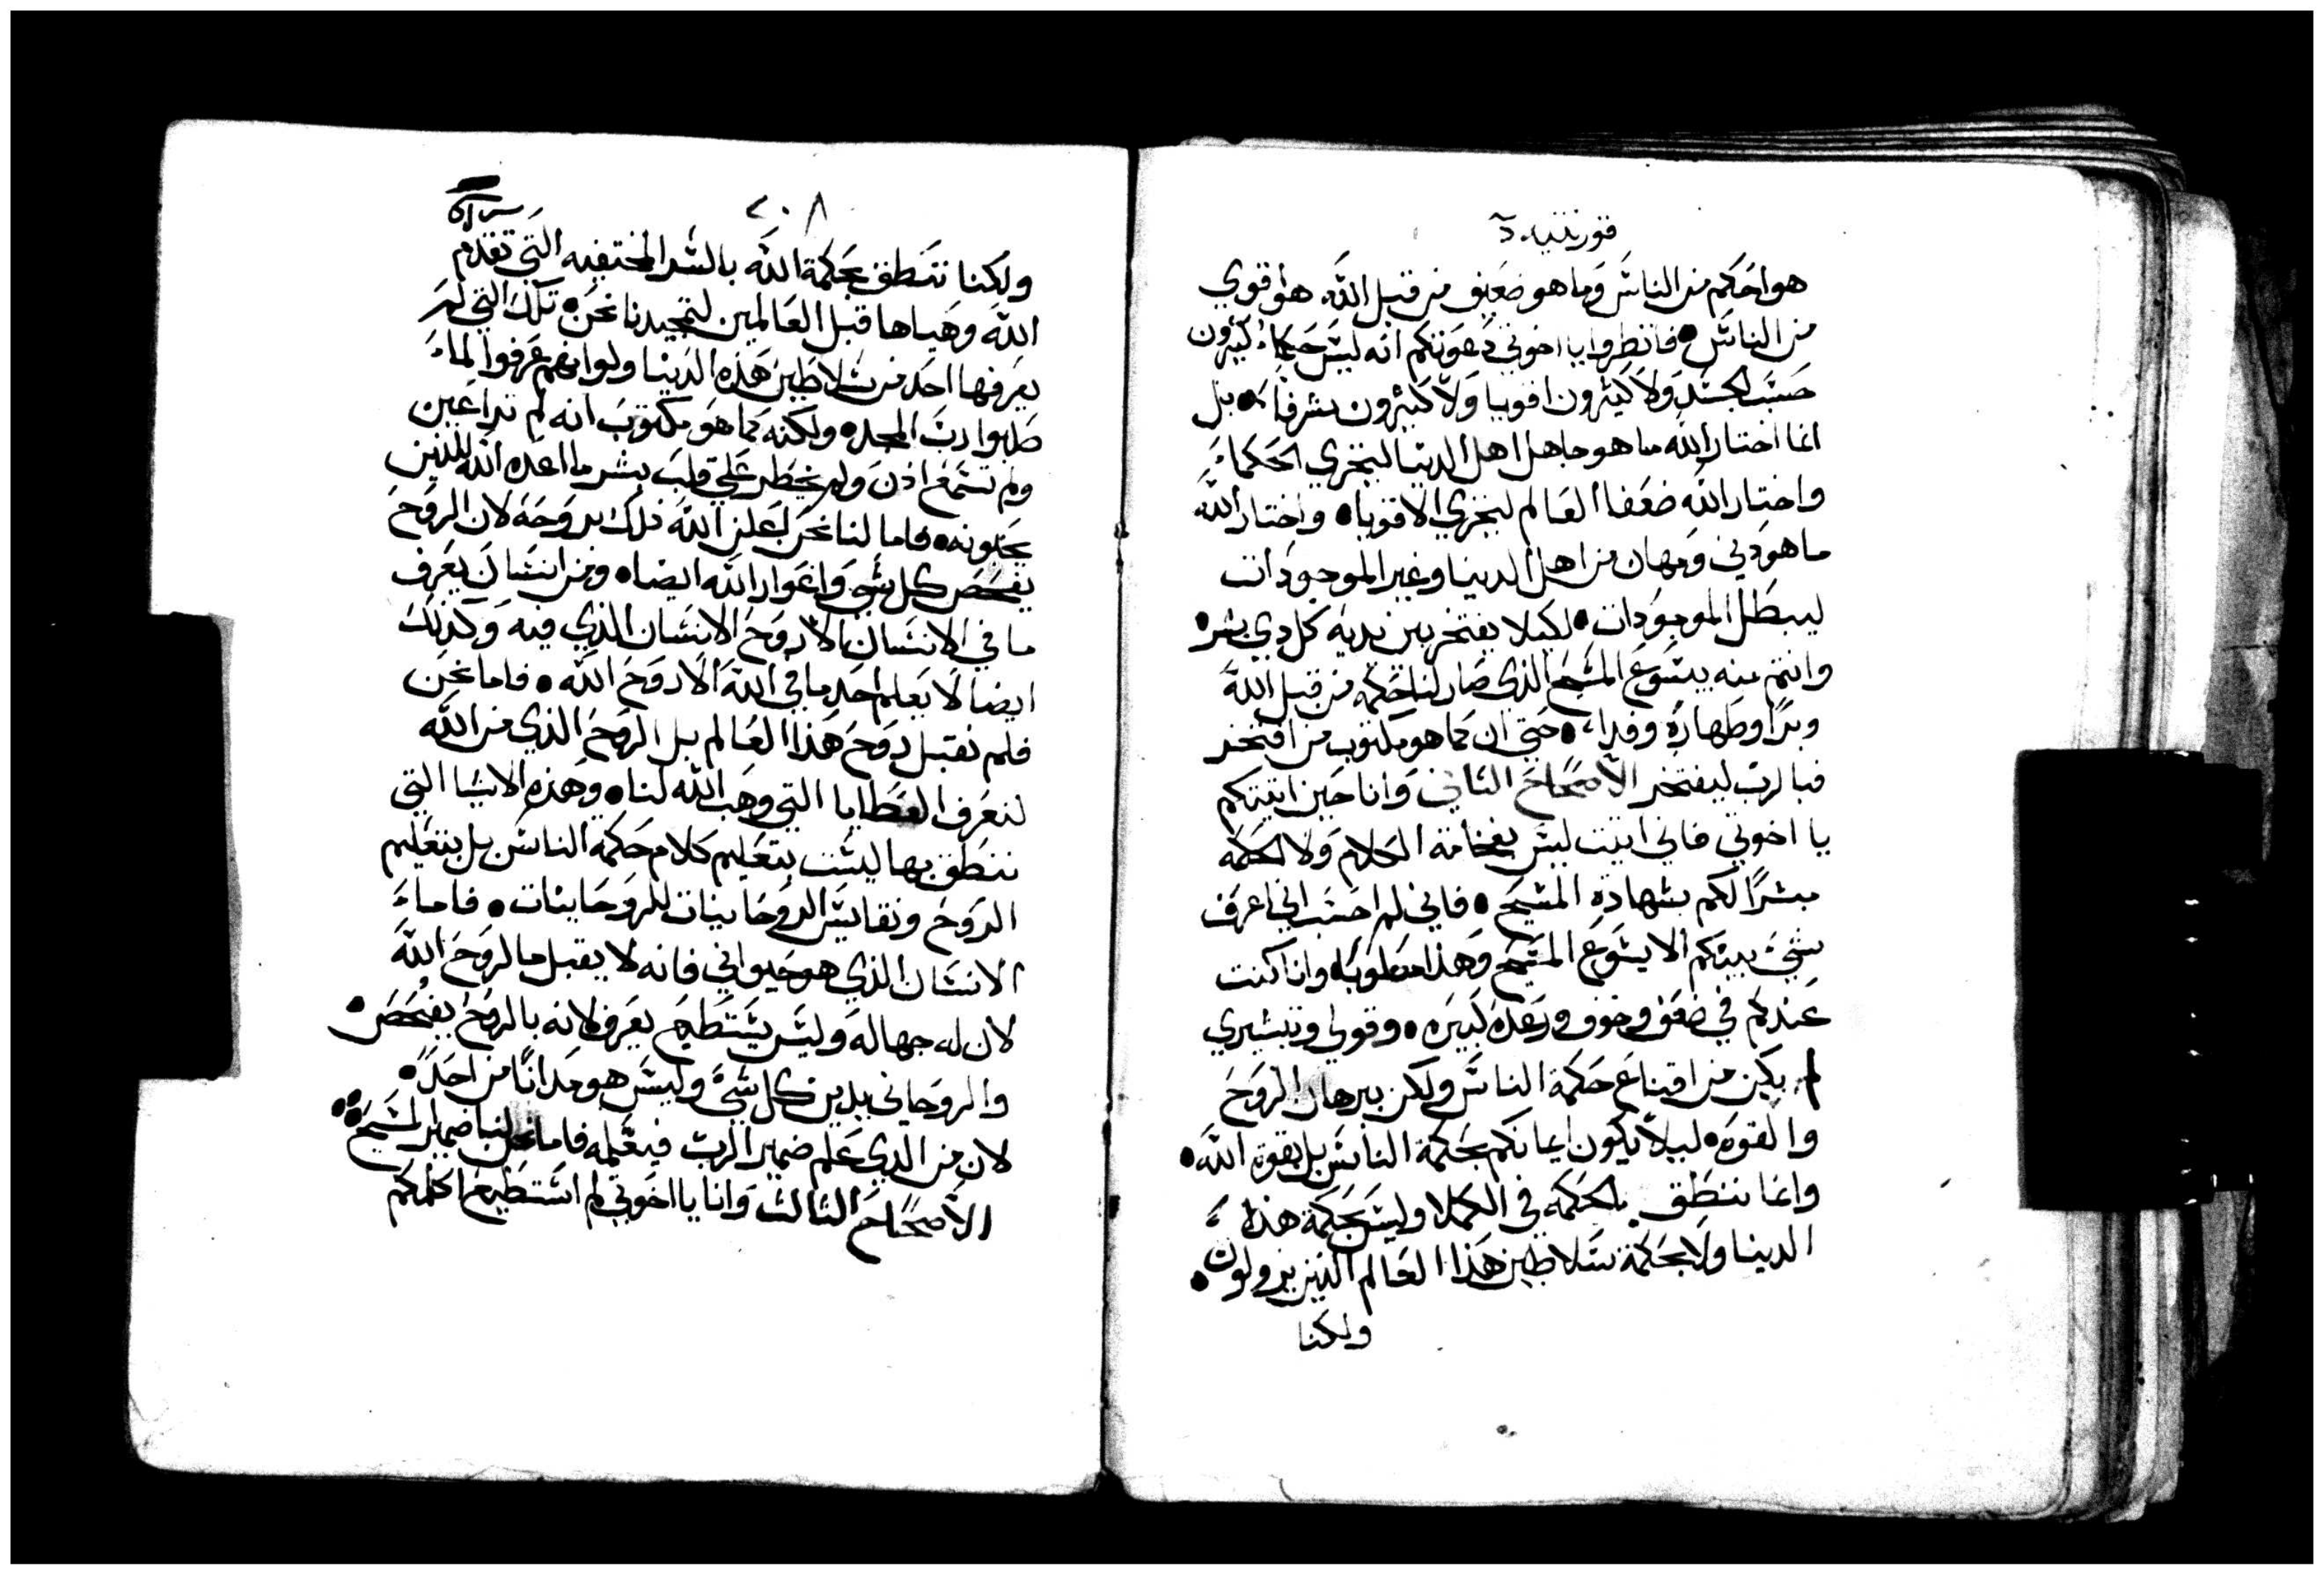 قورنتيه
هو احكم من الناس وما هو ضعيف من قبل الله هو اقوي
من الناس • فانظروا يا اخوتي دعوتكم انه ليس حكماء كثيرون
حسب الجسد ولا كثيرون اقويا ولا كثيرون شرفاء • بل
انما اختار الله ما هو جاهل اهل الدنيا ليخزي الحكماء
واختار الله ضعفا العالم ليخزي الاقويا • واختار الله
ما هو دني ومهان من اهل الدنيا وغير الموجودات
ليبطل الموجودات • لكيلا يفتخر بين يديه كل دي بشر •
وانتم منه بيسوع المسيح الذي صار لنا حكمه من قبل الله
وبرًا وطهارة وفداء • حتي ان كما هو مكتوب من افتخر
فبالرب ليفتخر الاصحاح التاني وانا حين اتيتكم
يا اخوتي فاني اتيت ليس بفخامة الكلام ولا الحكمه
مبشرًا لكم بشهادة المسيح • فاني لم احسب اني اعرف
شي بينكم الا يسوع المسيح وهذا مصلوبًا وانا كنت
عندكم في ضعف وخوف ورعدة كبيره • وقولي وتبشيري
لم يكن من اقناع حكمة الناس ولكن ببرهان الروح
والقوه • ليلا يكون ايمانكم بحكمة الناس بل بقوة الله •
وانما ننطق بالحكمه في الكملا وليس بحكمة هذه
الدنيا ولا بحكمة سلاطين هذا العالم الذين يزولون •
ولكنا
٢٠٨
ولكنا ننطق بحكمة الله بالسر المختفيه التي تقدم
الله وهياها قبل العالمين لتمجيدنا نحن • تلك التي لم
يعرفها احد من سلاطين هذه الدنيا ولو انهم عرفوا لما
صلبوا رب المجد • ولكنه كما هو مكتوب انه لم تراعين
ولم تسمع اذن ولم يخطر علي قلب بشر ما اعده الله للذين
يحبونه • فاما لنا نحن اعلن الله ذلك بروحه لان الروح
يفحص كل شي واغوار الله ايضا • ومن انسان يعرف
ما في الانسان الا روح الانسان الذي فيه وكذلك
ايضا لا يعلم احد ما في الله الا روح الله • فاما نحن
فلم نقبل روح هذا العالم بل الروح الذي من الله
لنعرف العطايا التي وهب الله لنا • وهذه الاشيا التي
ننطق بها ليست بتعليم كلام حكمة الناس بل بتعليم
الروح ونقايس الروحانيات للروحانيات • فاما
الانسان الذي هو حيواني فانه لا يقبل ما لروح الله
لان له جهاله وليس يستطيع يعرف لانه بالروح يفحص •
والروحاني يدين كل شي وليس هو مدانًا من احد •
لان من الذي علم ضمير الرب فيعلمه فاما نحن لنا ضمير المسيح
الاصحاح التالت وانا يا اخوتي لم استطيع اكلمكم